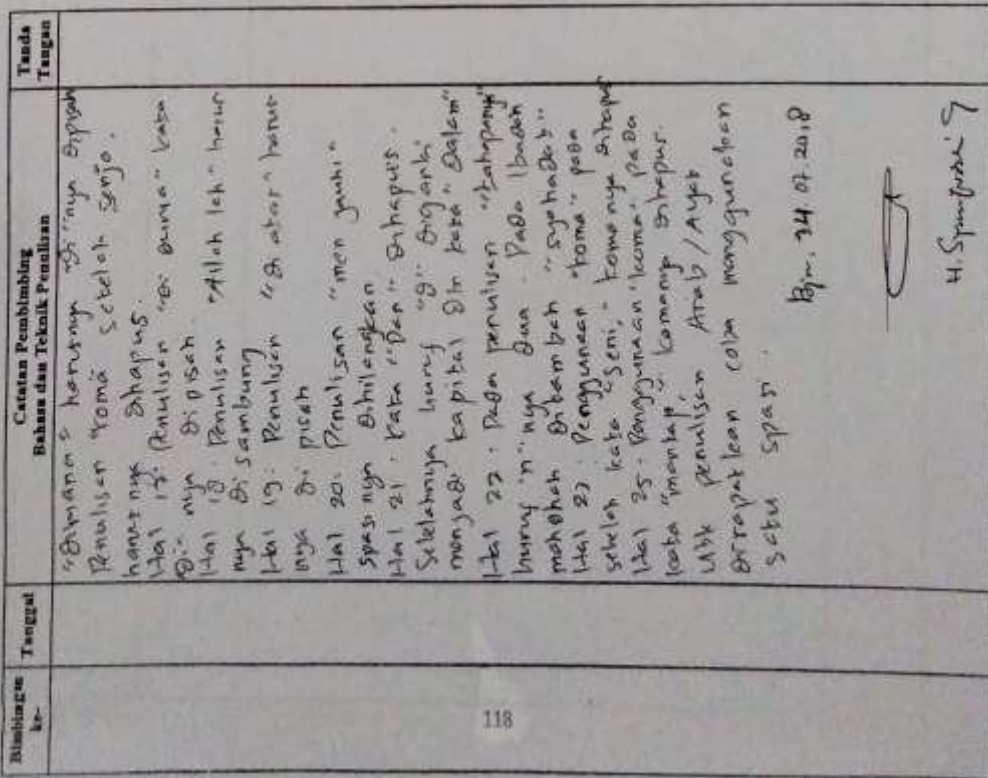 Bimbingan ke-
Tanggal
Catatan Pembimbing
Bahasa dan Teknik Penulisan
Tanda Tangan
"dimana" harusnya "di"nya dipisah
Penulisan "koma" setelah senja.
harusnya dihapus.
Hal 17. Penulisan "di dunia" kata
di-nya dipisah
Hal 18. Penulisan "Allah lah" harus
nya disambung
Hal 19. Penulisan "diatas" harus
nya di pisah
Hal 20. Penulisan "men jauhi"
spasi nya dihilangkan
Hal 21. kata "Dan" dihapus.
Setelahnya huruf "d" diganti
menjadi kapital dlm kata "Dalam"
Hal 22. Pada penulisan "tahapannya"
huruf "n" nya dua. Pada Ibadah
mahdhah ditambah "syahadat"
Hal 23. Penggunaan "koma" pada
setelah kata "Seni," komanya dihapus
Hal 25. Penggunaan "koma" pada
kata "mantap," komanya dihapus.
Utk penulisan Arab/Ayat
dirapatkan coba menggunakan
satu spasi.
24.07.2018
H.
118